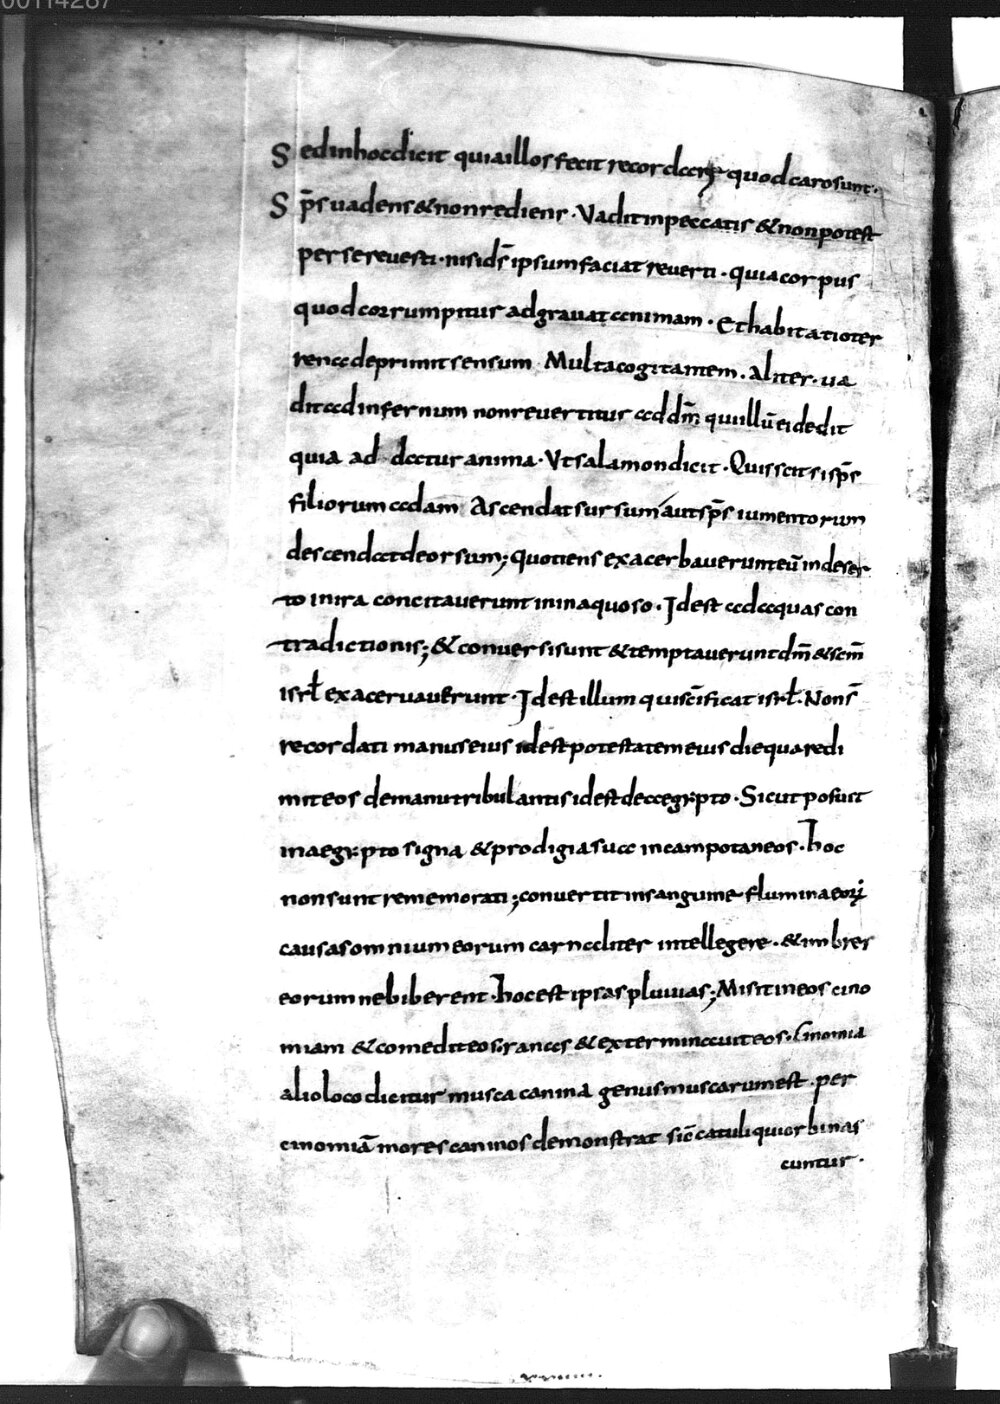 00114287
Sed in hoc dicit quia illos fecit recordari quod caro sunt.
S p̄s uadens & non rediens · Vadit in peccatis & non potest
per se reuesti · nisi d̄s ipsum faciat reuerti · quia corpus
quod corrumpitur adgrauat animam · Et habitatio ter
rena deprimit sensum Multa cogitantem . aliter . ua
dit ad infernum non reuertitur ad dm̄ qui illū ei dedit
quia ad datur anima · Vt salamon dicit · Quis scit si sp̄s
filiorum adam Ascendat sursum aut sp̄s iumentorum
descendat deorsum; quotiens exacerbauerunt eū in deser
to in ira concitauerunt in inaquoso · Idest ad aquas con
tradictionis; & conuersi sunt & temptauerunt dm̄ & scm̄
isrł exaceruauerunt · Idest illum qui scīficat isrł. Non s̄
recordati manus eius idest potestatem eius die qua redi
mit eos de manu tribulantis idest de aegypto · Sicut posuit
in aegypto signa & prodigia sua in campo taneos · hoc
non sunt rememorati; conuertit in sanguine flumina eorꝝ
causas omnium eorum carnaliter intellegere · & imbres
eorum ne biberent · hoc est ipsas pluuias; Misit in eos cino
miam & comedit eos ranas & exterminauit eos · Cinomia
alio loco dicitur musca canina genus muscarum est · per
cinomiā mores caninos demonstrat sic̄ catuli qui orbi nas
cuntur ·